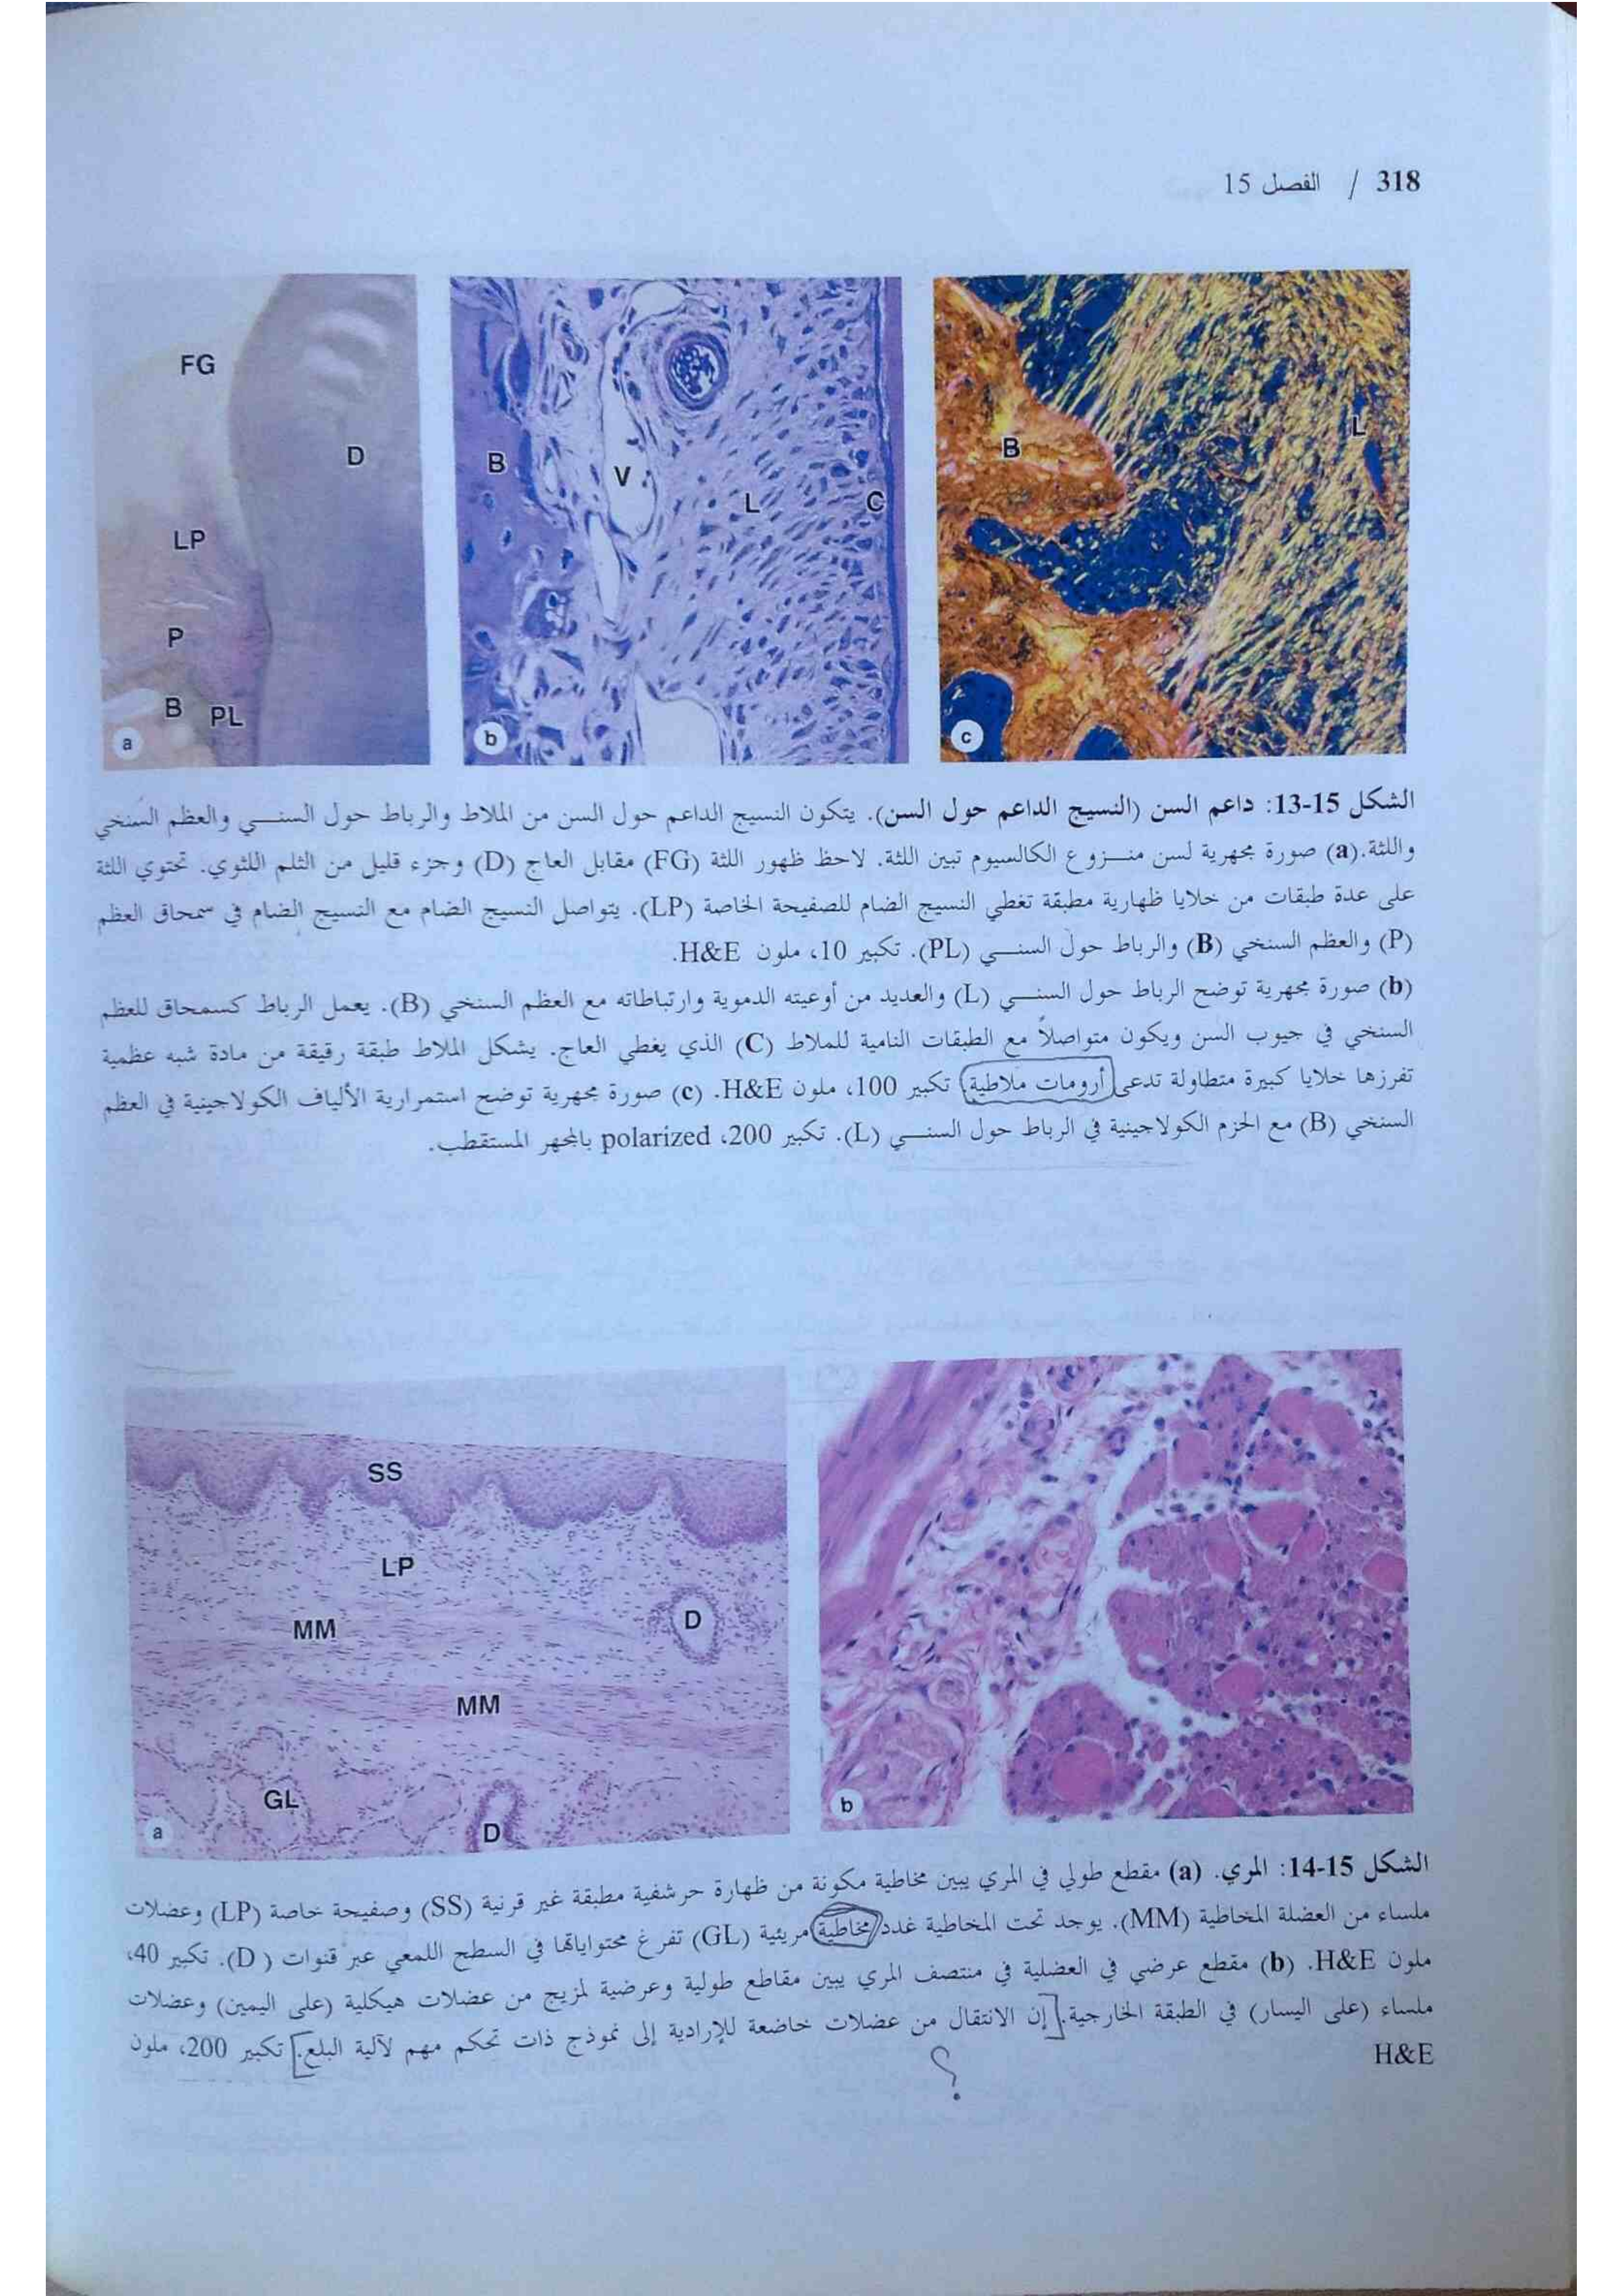 318 / الفصل 15
FG
D
LP
P
B
PL
a
B
V
L
C
b
B
L
c
الشكل 15-13: داعم السن (النسيج الداعم حول السن). يتكون النسيج الداعم حول السن من الملاط والرباط حول السنـي والعظم السنخي
واللثة. (a) صورة مجهرية لسن منـزوع الكالسيوم تبين اللثة. لاحظ ظهور اللثة (FG) مقابل العاج (D) وجزء قليل من الثلم اللثوي. تحتوي اللثة
على عدة طبقات من خلايا ظهارية مطبقة تغطي النسيج الضام للصفيحة الخاصة (LP). يتواصل النسيج الضام مع النسيج الضام في سمحاق العظم
(P) والعظم السنخي (B) والرباط حول السنـي (PL). تكبير 10، ملون H&E.
(b) صورة مجهرية توضح الرباط حول السنـي (L) والعديد من أوعيته الدموية وارتباطاته مع العظم السنخي (B). يعمل الرباط كسمحاق للعظم
السنخي في جيوب السن ويكون متواصلاً مع الطبقات النامية للملاط (C) الذي يغطي العاج. يشكل الملاط طبقة رقيقة من مادة شبه عظمية
تفرزها خلايا كبيرة متطاولة تدعى أرومات ملاطية) تكبير 100، ملون H&E. (c) صورة مجهرية توضح استمرارية الألياف الكولاجينية في العظم
السنخي (B) مع الحزم الكولاجينية في الرباط حول السنـي (L). تكبير 200، polarized بالمجهر المستقطب.
SS
LP
MM
D
MM
GL
D
a
b
الشكل 15-14: المري. (a) مقطع طولي في المري يبين مخاطية مكونة من ظهارة حرشفية مطبقة غير قرنية (SS) وصفيحة خاصة (LP) وعضلات
ملساء من العضلة المخاطية (MM). يوجد تحت المخاطية غدد مخاطية مريئية (GL) تفرغ محتواياتها في السطح اللمعي عبر قنوات (D). تكبير 40،
ملون H&E. (b) مقطع عرضي في العضلية في منتصف المري يبين مقاطع طولية وعرضية لمزيج من عضلات هيكلية (على اليمين) وعضلات
ملساء (على اليسار) في الطبقة الخارجية. [إن الانتقال من عضلات خاضعة للإرادية إلى نموذج ذات تحكم مهم لآلية البلع.] تكبير 200، ملون
H&E
؟